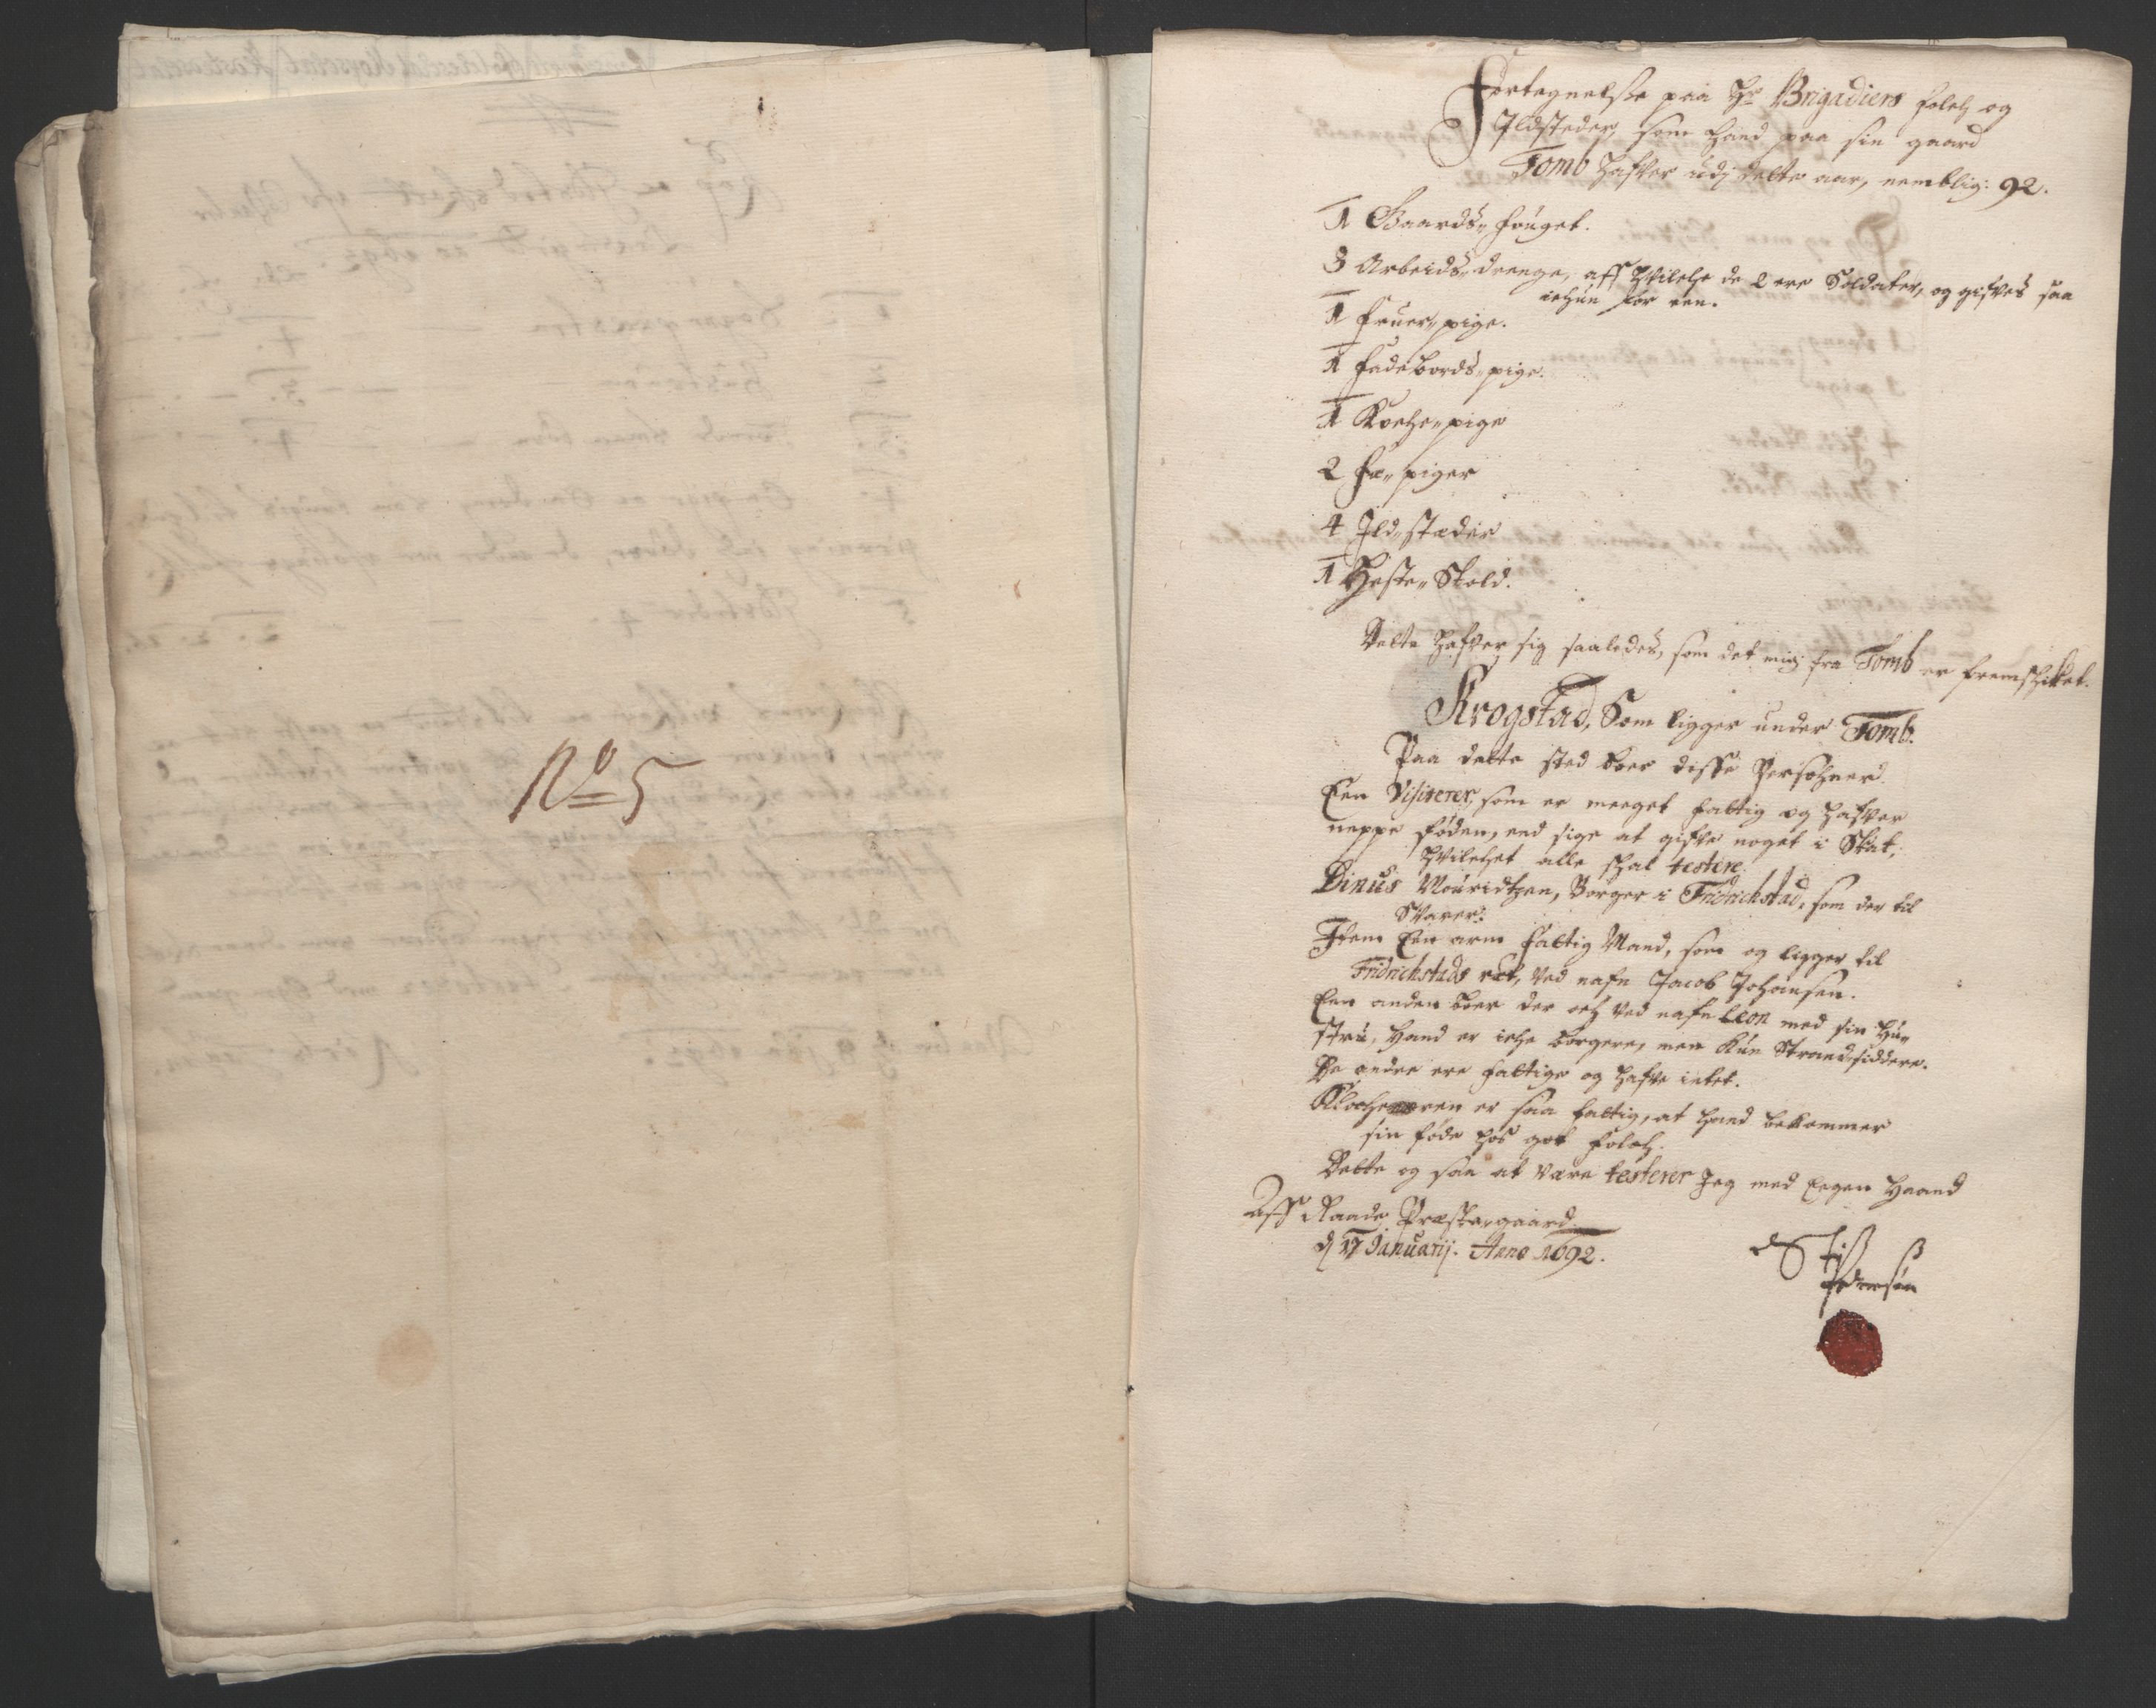 No 5
Fortegnelse paa Hr Brigadiers folch og
Ildsteder, som Hand paa sin gaard
Tomb hafver udj dette aar, nemblig: 92.
1 Gaards„fouget.
3 Arbeids„drenge, aff Hvilche de 2 ere Soldater, og gifves saa
ichun for een.
1 Fruer„pige.
1 Fadebords„pige.
1 Koche„pige
2 Fæ„piger
4 Ild„stæder
1 Heste„Skold.
Dette hafver sig saaledes, som det mig fra Tomb er fremschiket.
Krogstad, Som ligger under Tomb.
Paa dette sted boer disse Persohner
Een Visiterer, som er meeget fattig og hafver
neppe føden, end sige at gifve noget i Skat,
Hvilchet alle schal testere.
Dinus Mouridtzen, Borger i Fridrichstad, som der til
Svarer.
Item Een arm fattig Mand, som og ligger til
Fridrichstads ret, ved nafn Jacob Johansen.
Een anden boer der och ved nafn Leon med sin Hu„
stru, Hand er iche borgere, men kun Strandsiddere.
De andre ere fattige og hafve intet.
Klocheren er saa fattig, at hand bekommer
sin føde hos got folch.
Dette og saa at være testerer Jeg med Eegen Haand
Aff Raade Præstegaard
d 17 Januarij. Anno 1692.
Pedersøn